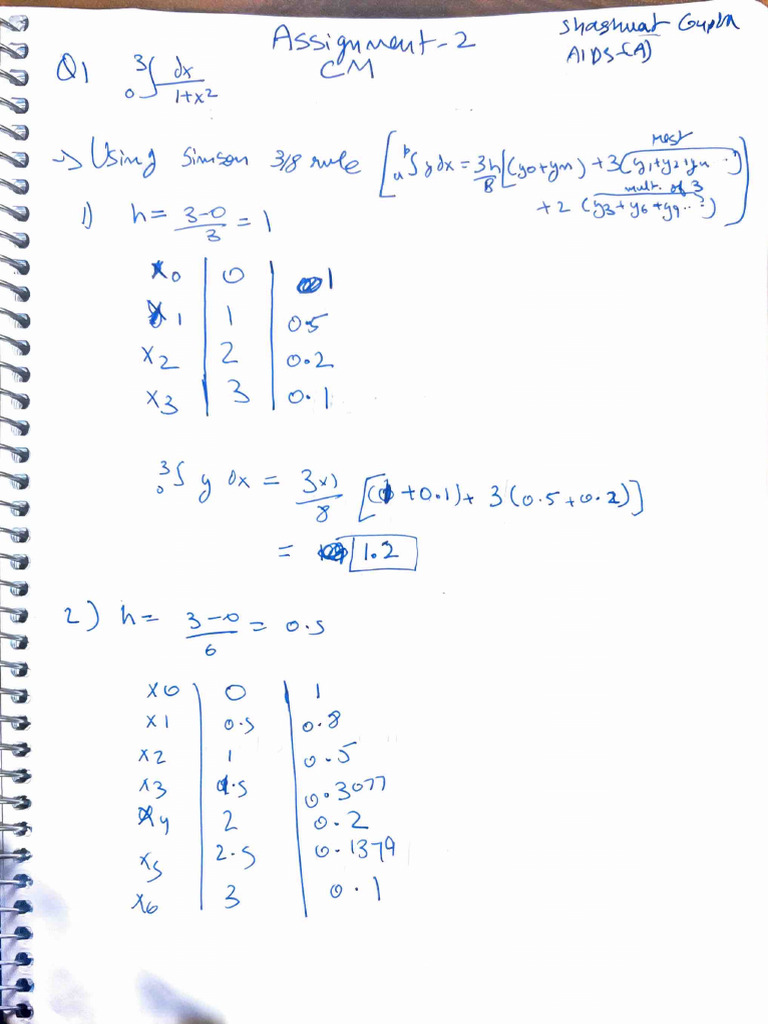 Assignment-2
CM
Shashwat Gupta
AIDS-(A)
Q1 ₀³∫ dx/(1+x²)
→ Using Simson 3/8 rule [ₐᵇ∫ y dx = 3h/8 [(y0+yn) + 3(y1+y2+y4 ...) rest
+ 2 (y3+y6+y9...) mult. of 3]
1) h = (3-0)/3 = 1
x0 | 0 | 1
x1 | 1 | 0.5
x2 | 2 | 0.2
x3 | 3 | 0.1
₀³∫ y dx = (3×1)/8 [(1+0.1)+ 3(0.5+0.2)]
= 1.2
2) h = (3-0)/6 = 0.5
x0 | 0 | 1
x1 | 0.5 | 0.8
x2 | 1 | 0.5
x3 | 1.5 | 0.3077
x4 | 2 | 0.2
x5 | 2.5 | 0.1379
x6 | 3 | 0.1